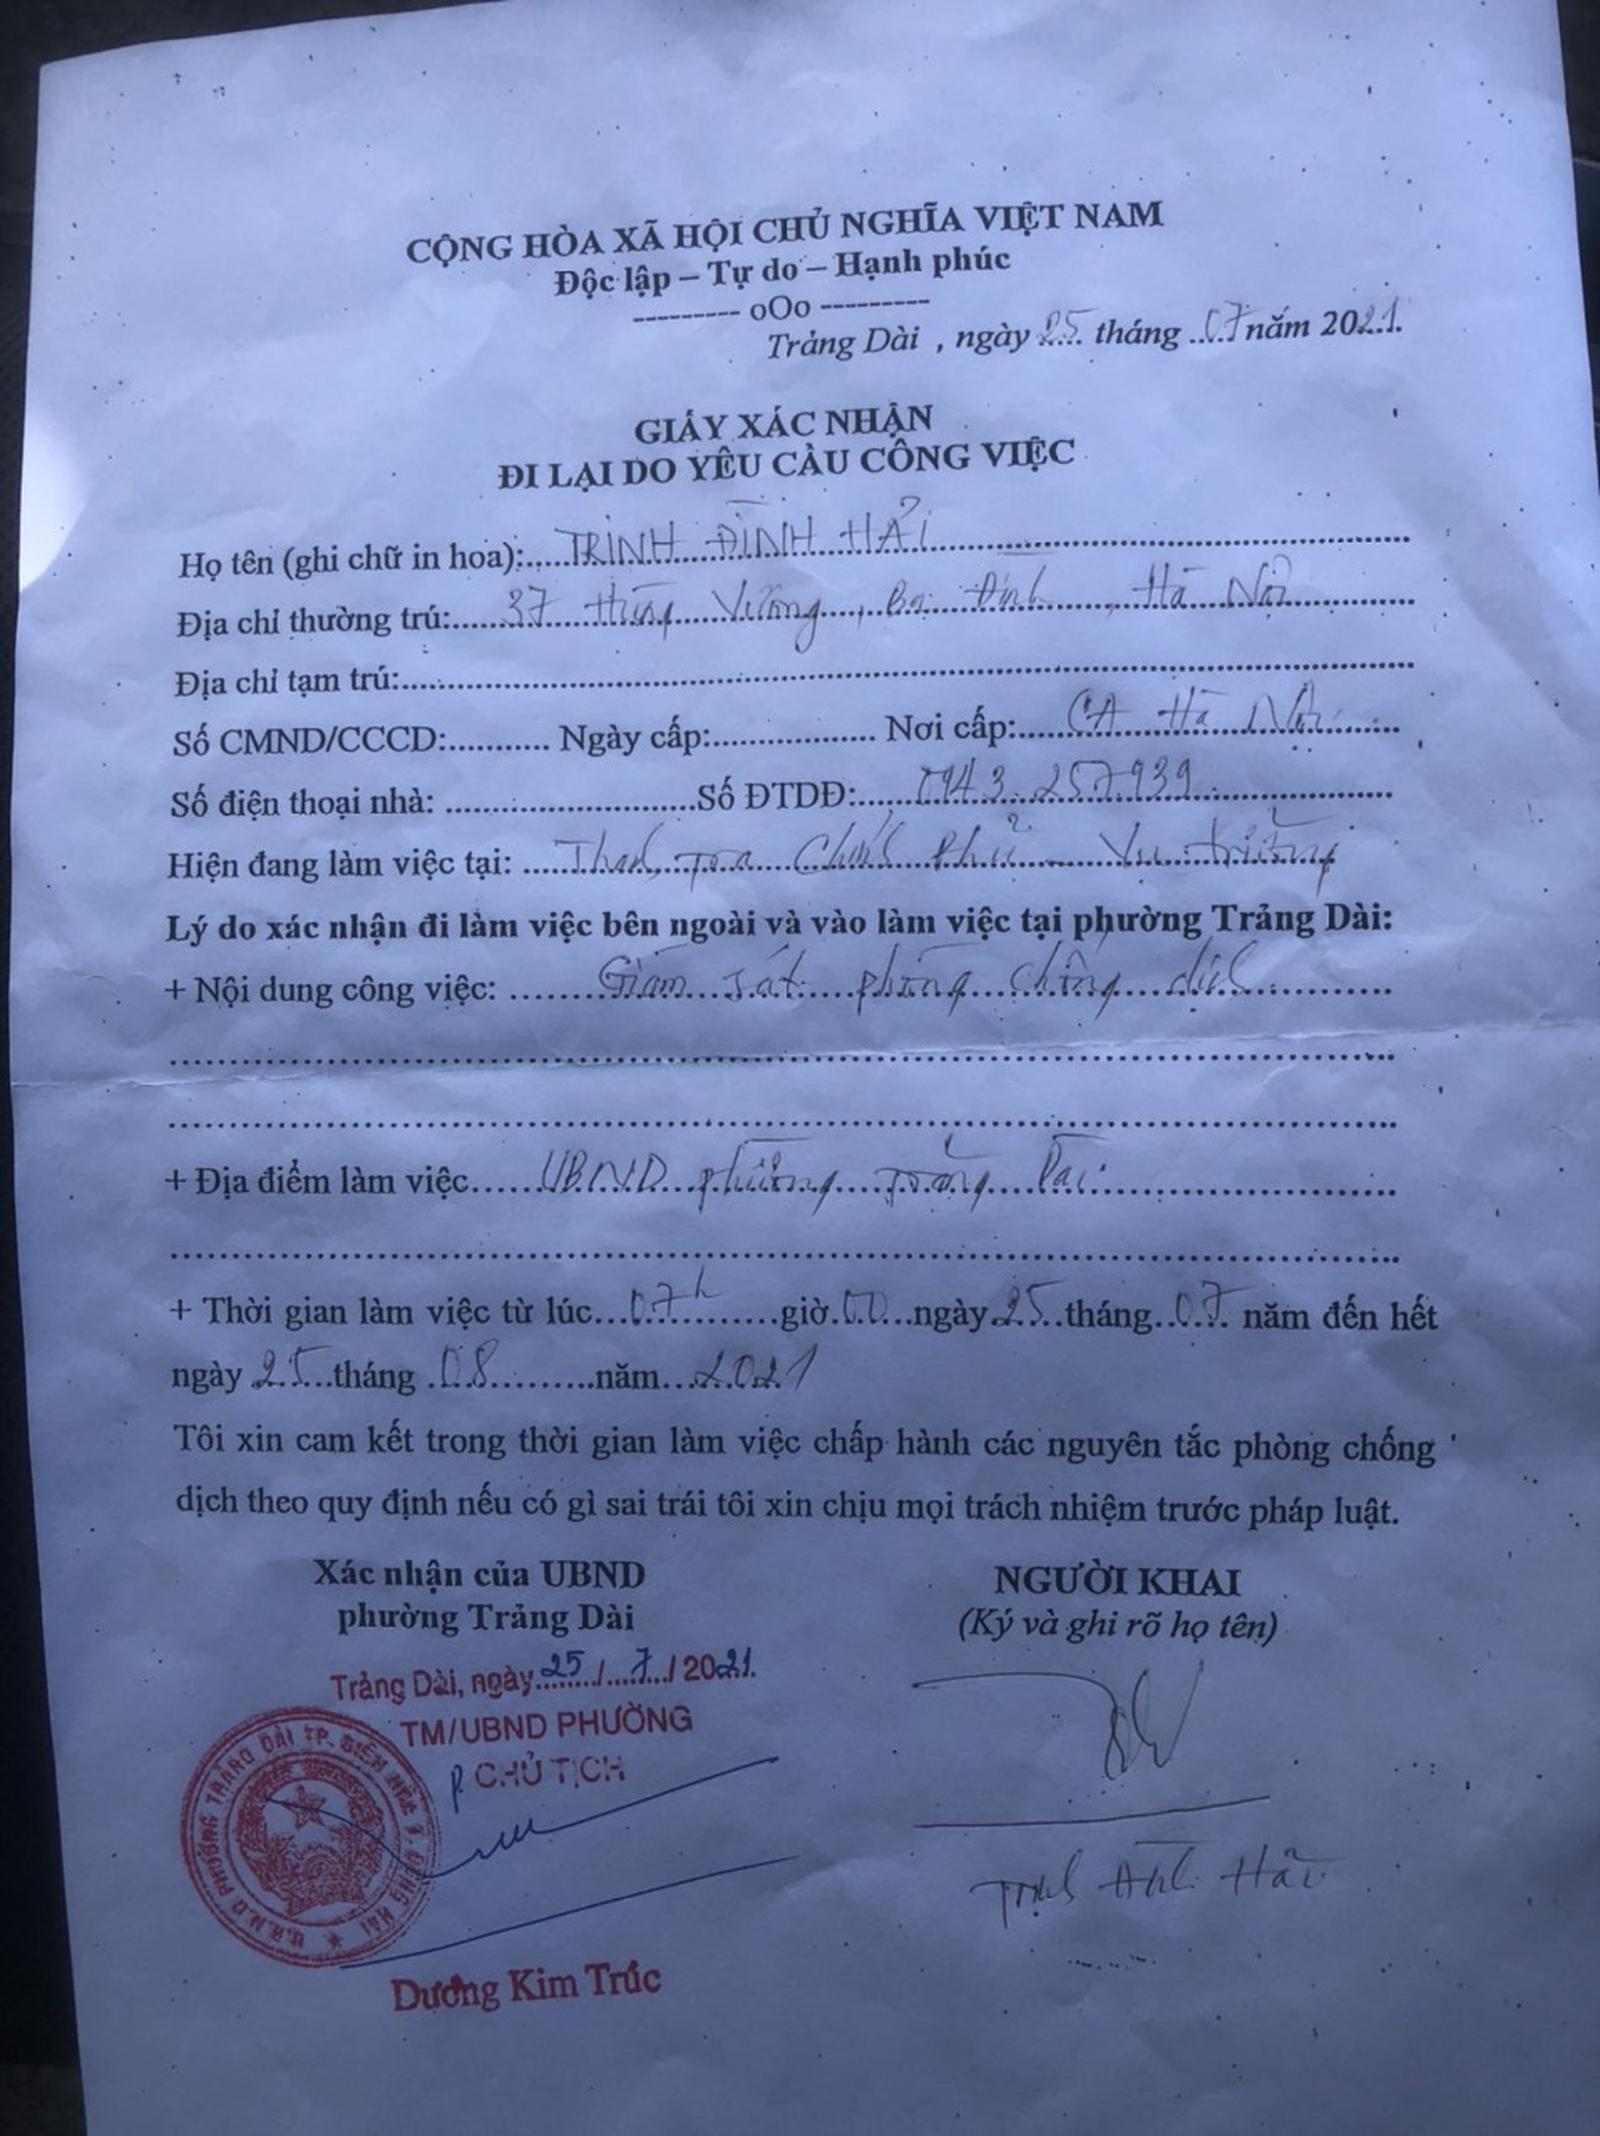 CỘNG HÒA XÃ HỘI CHỦ NGHĨA VIỆT NAM
Độc lập – Tự do – Hạnh phúc
--------- oOo ---------
Trảng Dài , ngày 25 tháng 07 năm 2021.
GIẤY XÁC NHẬN
ĐI LẠI DO YÊU CẦU CÔNG VIỆC
Họ tên (ghi chữ in hoa): TRỊNH ĐÌNH HẢI
Địa chỉ thường trú: 37 Hùng Vương, Ba Đình, Hà Nội
Địa chỉ tạm trú:
Số CMND/CCCD: Ngày cấp: Nơi cấp: CA Hà Nội
Số điện thoại nhà: Số ĐTDĐ: 0943.257.939
Hiện đang làm việc tại: Thanh Tra Chính Phủ Vụ trưởng
Lý do xác nhận đi làm việc bên ngoài và vào làm việc tại phường Trảng Dài:
+ Nội dung công việc: Giám sát phòng chống dịch
+ Địa điểm làm việc UBND phường Trảng Dài
+ Thời gian làm việc từ lúc 07h giờ 00 ngày 25 tháng 07 năm đến hết
ngày 25 tháng 08 năm 2021
Tôi xin cam kết trong thời gian làm việc chấp hành các nguyên tắc phòng chống
dịch theo quy định nếu có gì sai trái tôi xin chịu mọi trách nhiệm trước pháp luật.
Xác nhận của UBND
phường Trảng Dài
Trảng Dài, ngày 25 / 7 / 2021.
TM/UBND PHƯỜNG
P. CHỦ TỊCH
U.B.N.D PHƯỜNG TRẢNG DÀI TP. BIÊN HÒA T. ĐỒNG NAI
Dương Kim Trúc
NGƯỜI KHAI
(Ký và ghi rõ họ tên)
Trịnh Đình Hải